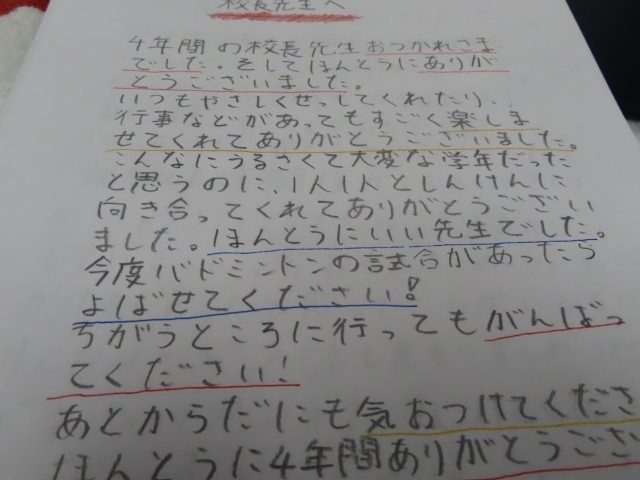 校長先生へ
4年間の校長先生おつかれさま
でした。そしてほんとうにありが
とうございました。
いつもやさしくせっしてくれたり、
行事などがあってもすごく楽しま
せてくれてありがとうございました。
こんなにうるさくて大変な学年だった
と思うのに、1人1人としんけんに
向き合ってくれてありがとうござい
ました。ほんとうにいい先生でした。
今度バドミントンの試合があったら
よばせてください!
ちがうところに行ってもがんばっ
てください!
あとからだにも気おつけてくださ
ほんとうに4年間ありがとうござ